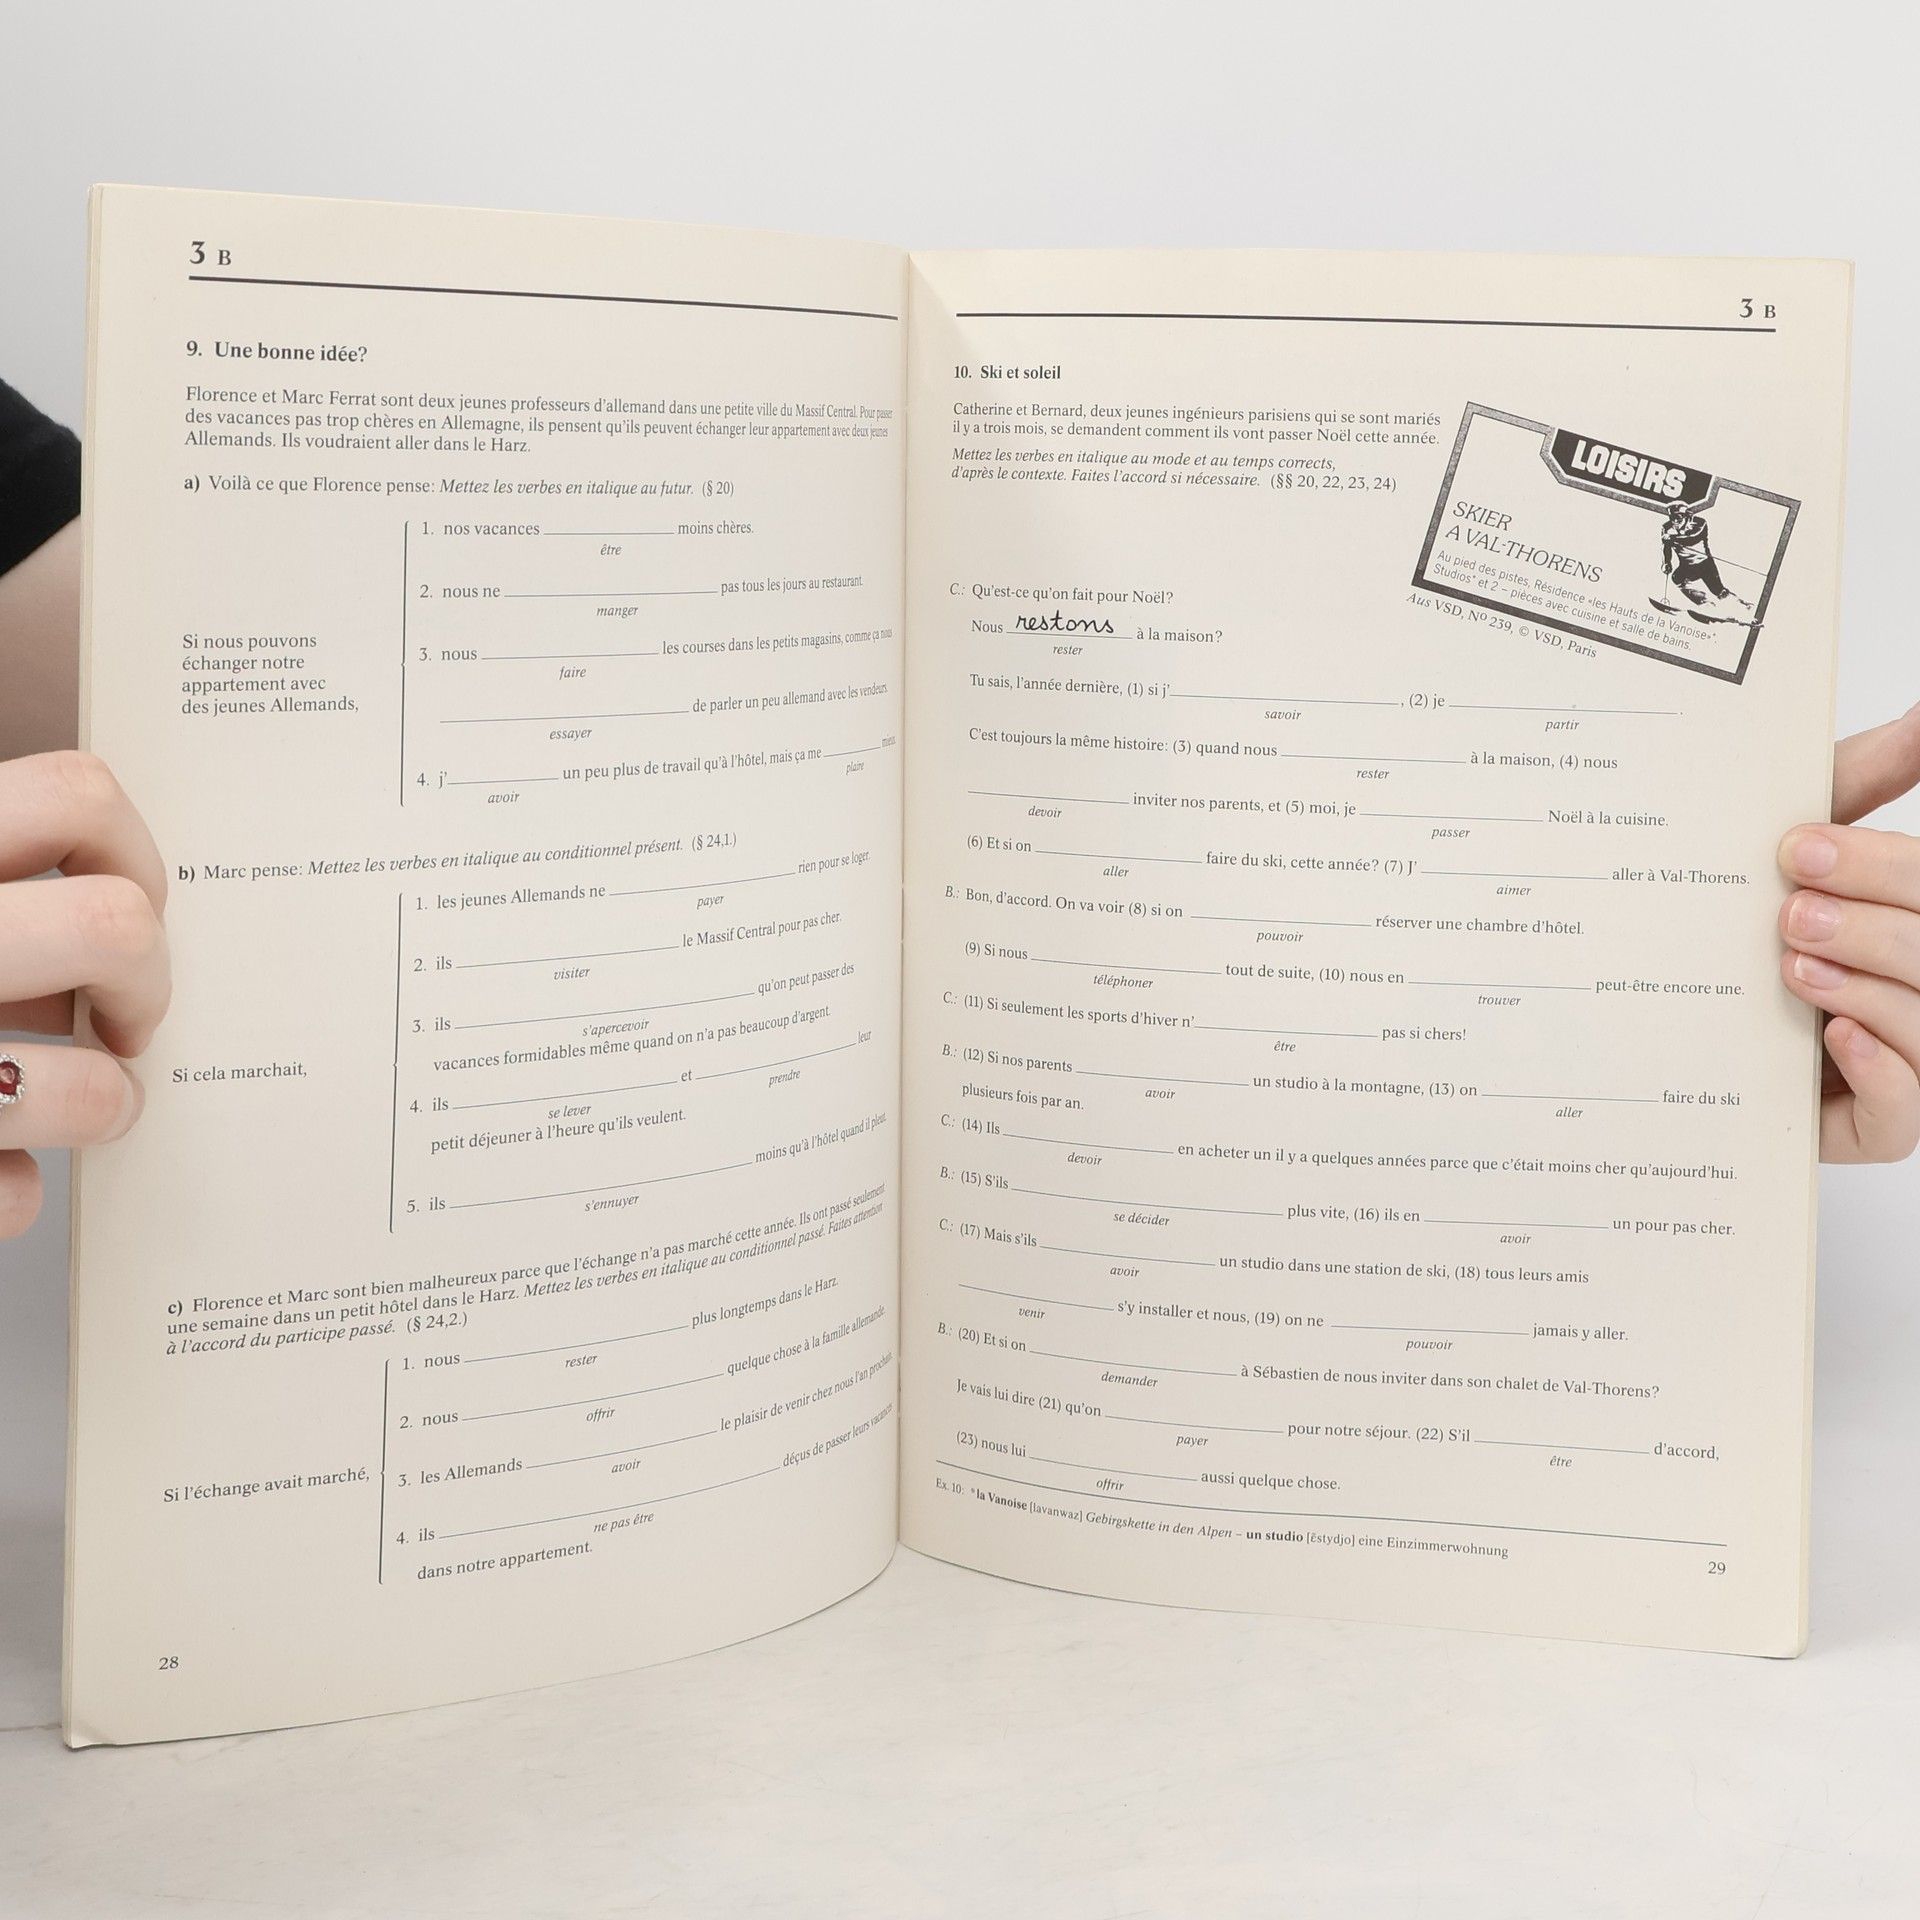 3 B
9. Une bonne idée?
Florence et Marc Ferrat sont deux jeunes professeurs d'allemand dans une petite ville du Massif Central. Pour passer
des vacances pas trop chères en Allemagne, ils pensent qu'ils peuvent échanger leur appartement avec deux jeunes
Allemands. Ils voudraient aller dans le Harz.
a) Voilà ce que Florence pense: Mettez les verbes en italique au futur. (§ 20)
Si nous pouvons
échanger notre
appartement avec
des jeunes Allemands,
1. nos vacances ____ moins chères.
être
2. nous ne ____ pas tous les jours au restaurant.
manger
3. nous ____ les courses dans les petits magasins, comme ça nous
faire
____ de parler un peu allemand avec les vendeurs.
essayer
4. j'____ un peu plus de travail qu'à l'hôtel, mais ça me ____ mieux
avoir plaire
b) Marc pense: Mettez les verbes en italique au conditionnel présent. (§ 24,1.)
Si cela marchait,
1. les jeunes Allemands ne ____ rien pour se loger.
payer
2. ils ____ le Massif Central pour pas cher.
visiter
3. ils ____ qu'on peut passer des
s'apercevoir
vacances formidables même quand on n'a pas beaucoup d'argent.
4. ils ____ et ____ leur
se lever prendre
petit déjeuner à l'heure qu'ils veulent.
5. ils ____ moins qu'à l'hôtel quand il pleut.
s'ennuyer
c) Florence et Marc sont bien malheureux parce que l'échange n'a pas marché cette année. Ils ont passé seulement
une semaine dans un petit hôtel dans le Harz. Mettez les verbes en italique au conditionnel passé. Faites attention
à l'accord du participe passé. (§ 24,2.)
Si l'échange avait marché,
1. nous ____ plus longtemps dans le Harz.
rester
2. nous ____ quelque chose à la famille allemande.
offrir
3. les Allemands ____ le plaisir de venir chez nous l'an prochain.
avoir
4. ils ____ déçus de passer leurs vacances
ne pas être
dans notre appartement.
28
3 B
10. Ski et soleil
Catherine et Bernard, deux jeunes ingénieurs parisiens qui se sont mariés
il y a trois mois, se demandent comment ils vont passer Noël cette année.
Mettez les verbes en italique au mode et au temps corrects,
d'après le contexte. Faites l'accord si nécessaire. (§§ 20, 22, 23, 24)
LOISIRS
SKIER
A VAL-THORENS
Au pied des pistes, Résidence «les Hauts de la Vanoise»*.
Studios* et 2 – pièces avec cuisine et salle de bains.
Aus VSD, Nº 239, © VSD, Paris
C.: Qu'est-ce qu'on fait pour Noël?
Nous restons à la maison?
rester
Tu sais, l'année dernière, (1) si j'____, (2) je ____.
savoir partir
C'est toujours la même histoire: (3) quand nous ____ à la maison, (4) nous
rester
____ inviter nos parents, et (5) moi, je ____ Noël à la cuisine.
devoir passer
(6) Et si on ____ faire du ski, cette année? (7) J'____ aller à Val-Thorens.
aller aimer
B.: Bon, d'accord. On va voir (8) si on ____ réserver une chambre d'hôtel.
pouvoir
(9) Si nous ____ tout de suite, (10) nous en ____ peut-être encore une.
téléphoner trouver
C.: (11) Si seulement les sports d'hiver n'____ pas si chers!
être
B.: (12) Si nos parents ____ un studio à la montagne, (13) on ____ faire du ski
avoir aller
plusieurs fois par an.
C.: (14) Ils ____ en acheter un il y a quelques années parce que c'était moins cher qu'aujourd'hui.
devoir
B.: (15) S'ils ____ plus vite, (16) ils en ____ un pour pas cher.
se décider avoir
C.: (17) Mais s'ils ____ un studio dans une station de ski, (18) tous leurs amis
avoir
____ s'y installer et nous, (19) on ne ____ jamais y aller.
venir pouvoir
B.: (20) Et si on ____ à Sébastien de nous inviter dans son chalet de Val-Thorens?
demander
Je vais lui dire (21) qu'on ____ pour notre séjour. (22) S'il ____ d'accord,
payer être
(23) nous lui ____ aussi quelque chose.
offrir
Ex. 10: *la Vanoise [lavanwaz] Gebirgskette in den Alpen – un studio [ɛ̃stydjo] eine Einzimmerwohnung
29